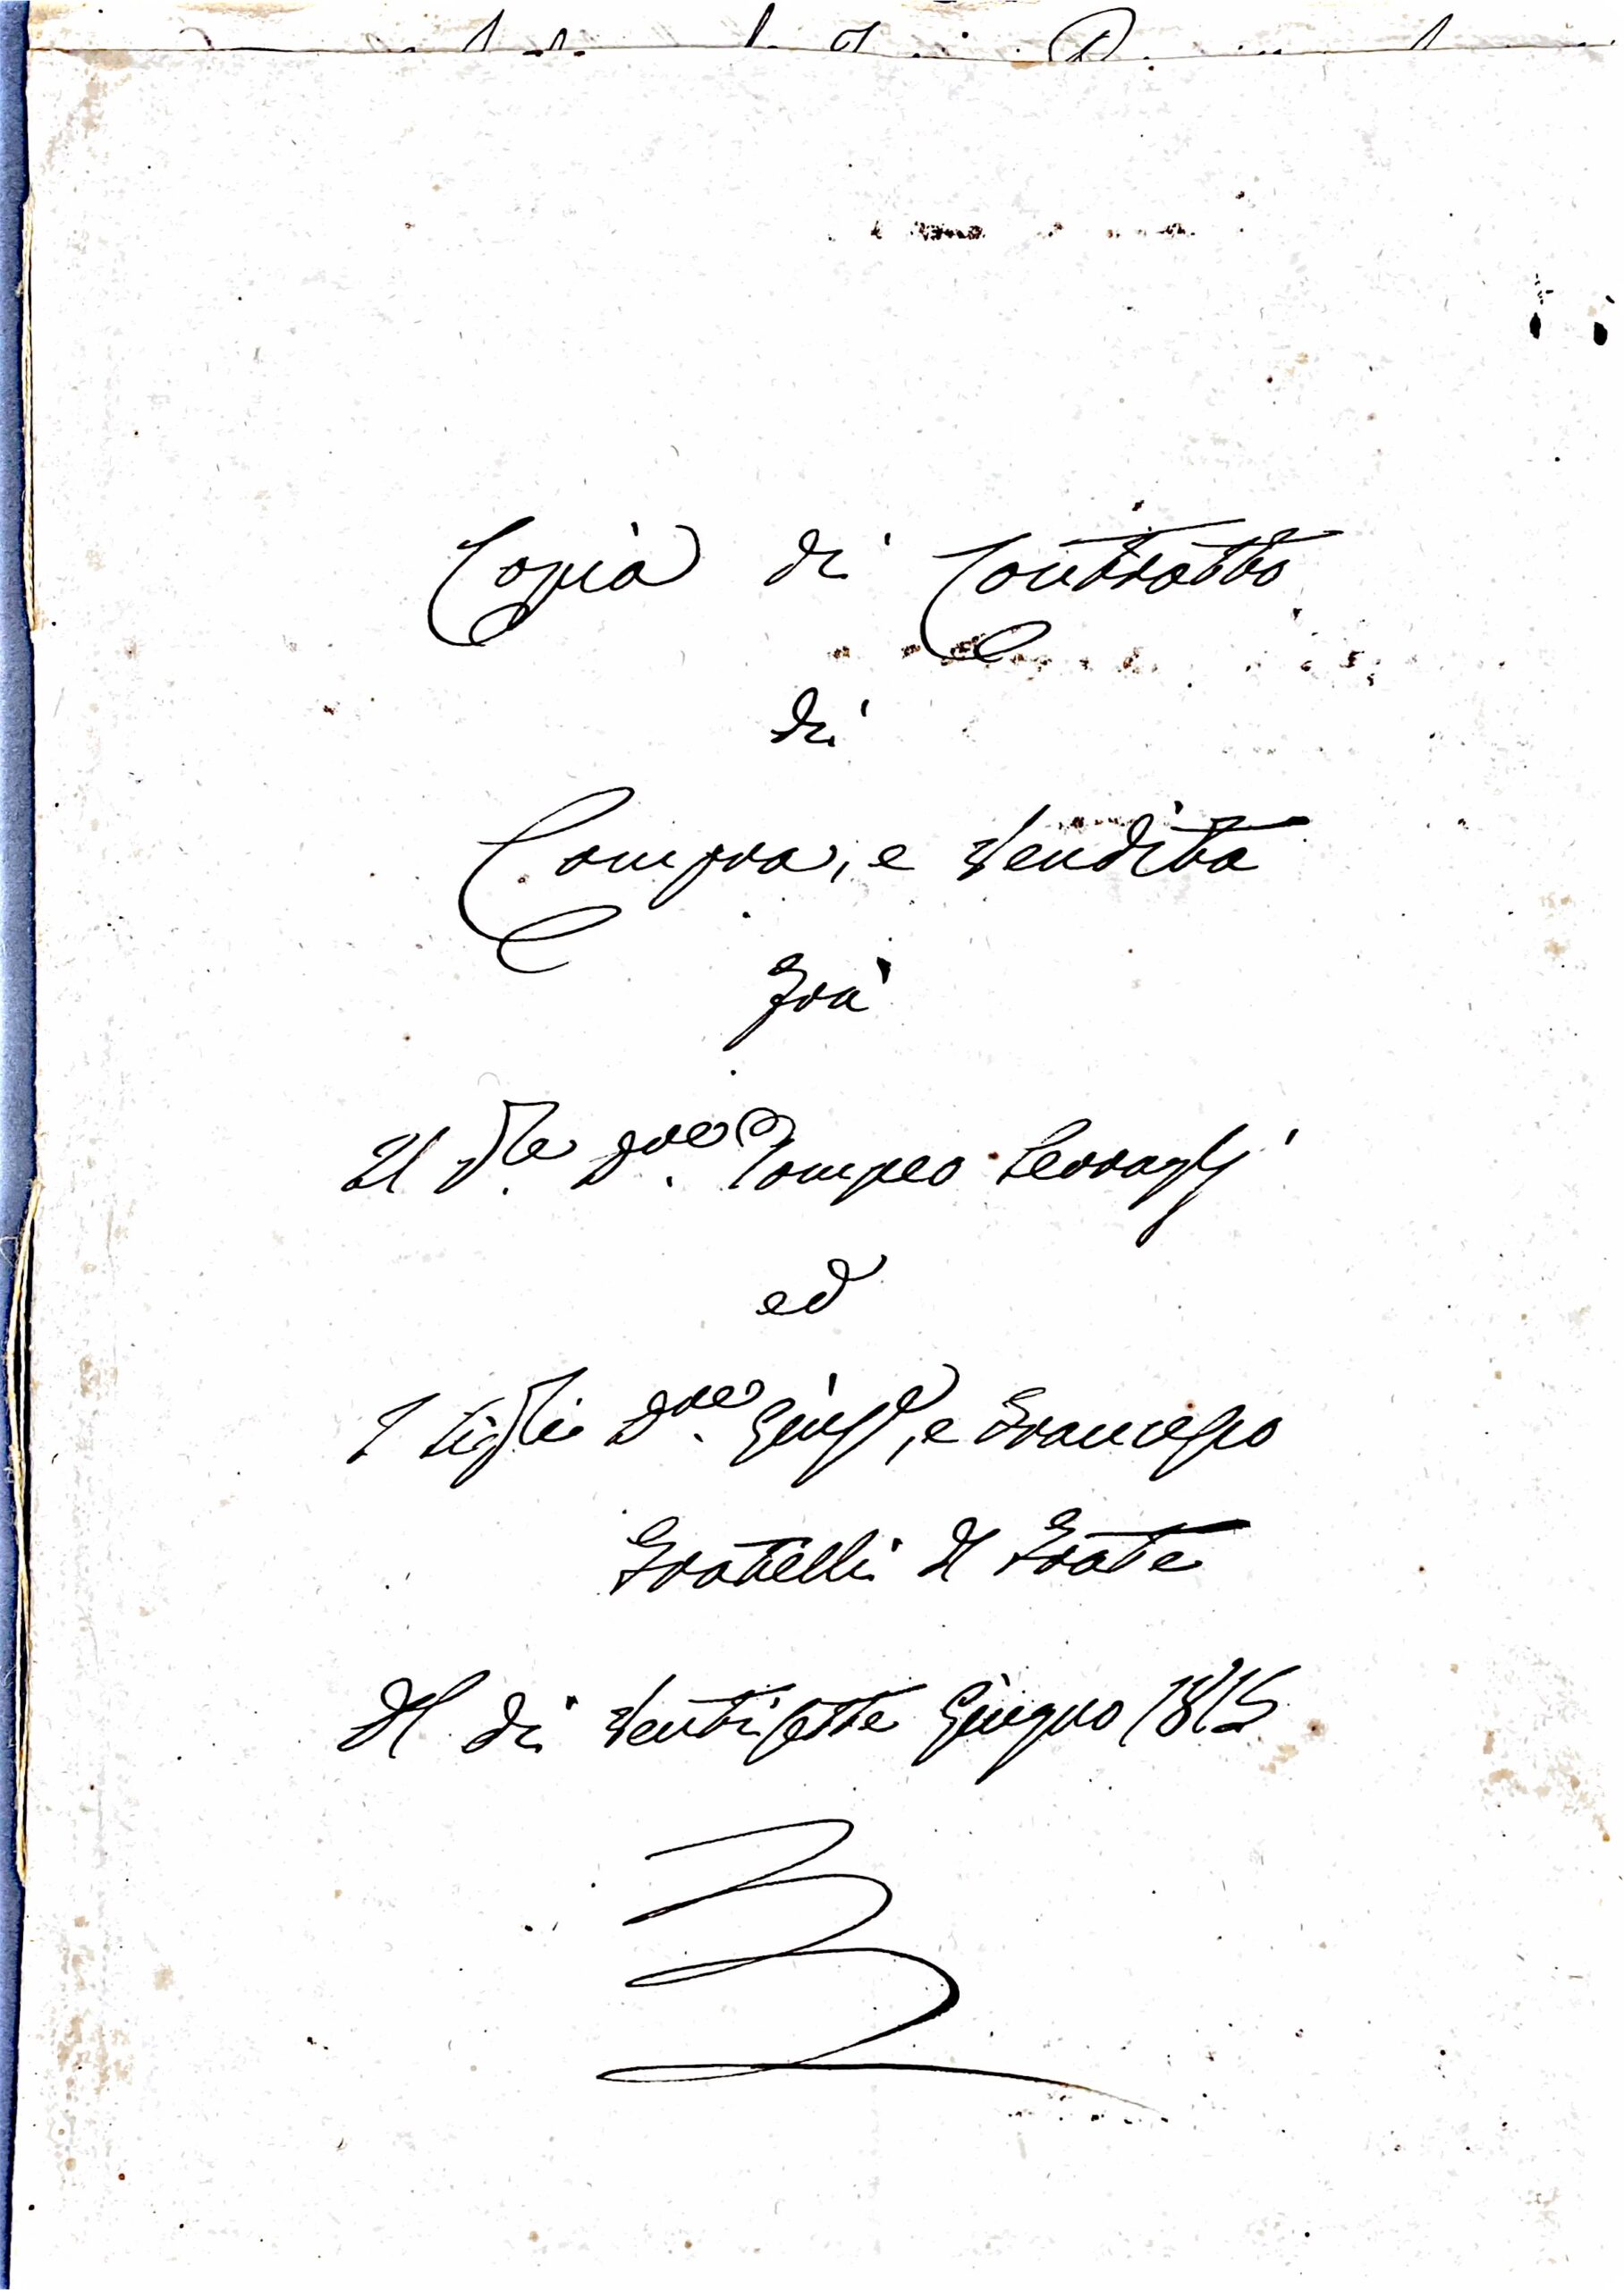 Copia di Contratto
di
Compra, e Vendita
Frà
Il Dre Pompeo Serragli
ed
I Dri Giuse, e Francesco
Fratelli Del Frate
Del dì Ventisette Giugno 1815